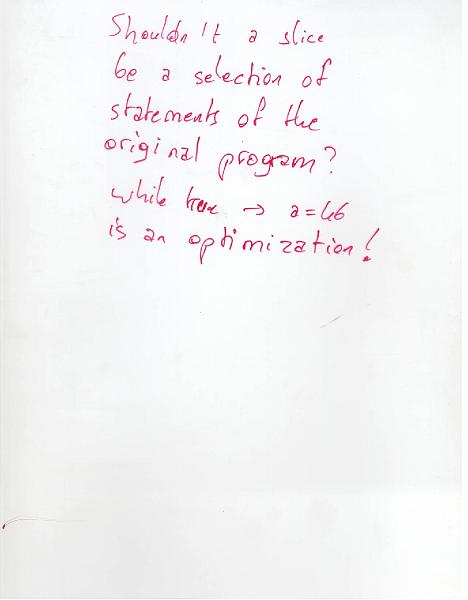 Shouldn't a slice
be a selection of
statements of the
original program?
while true → a=46
is an optimization!